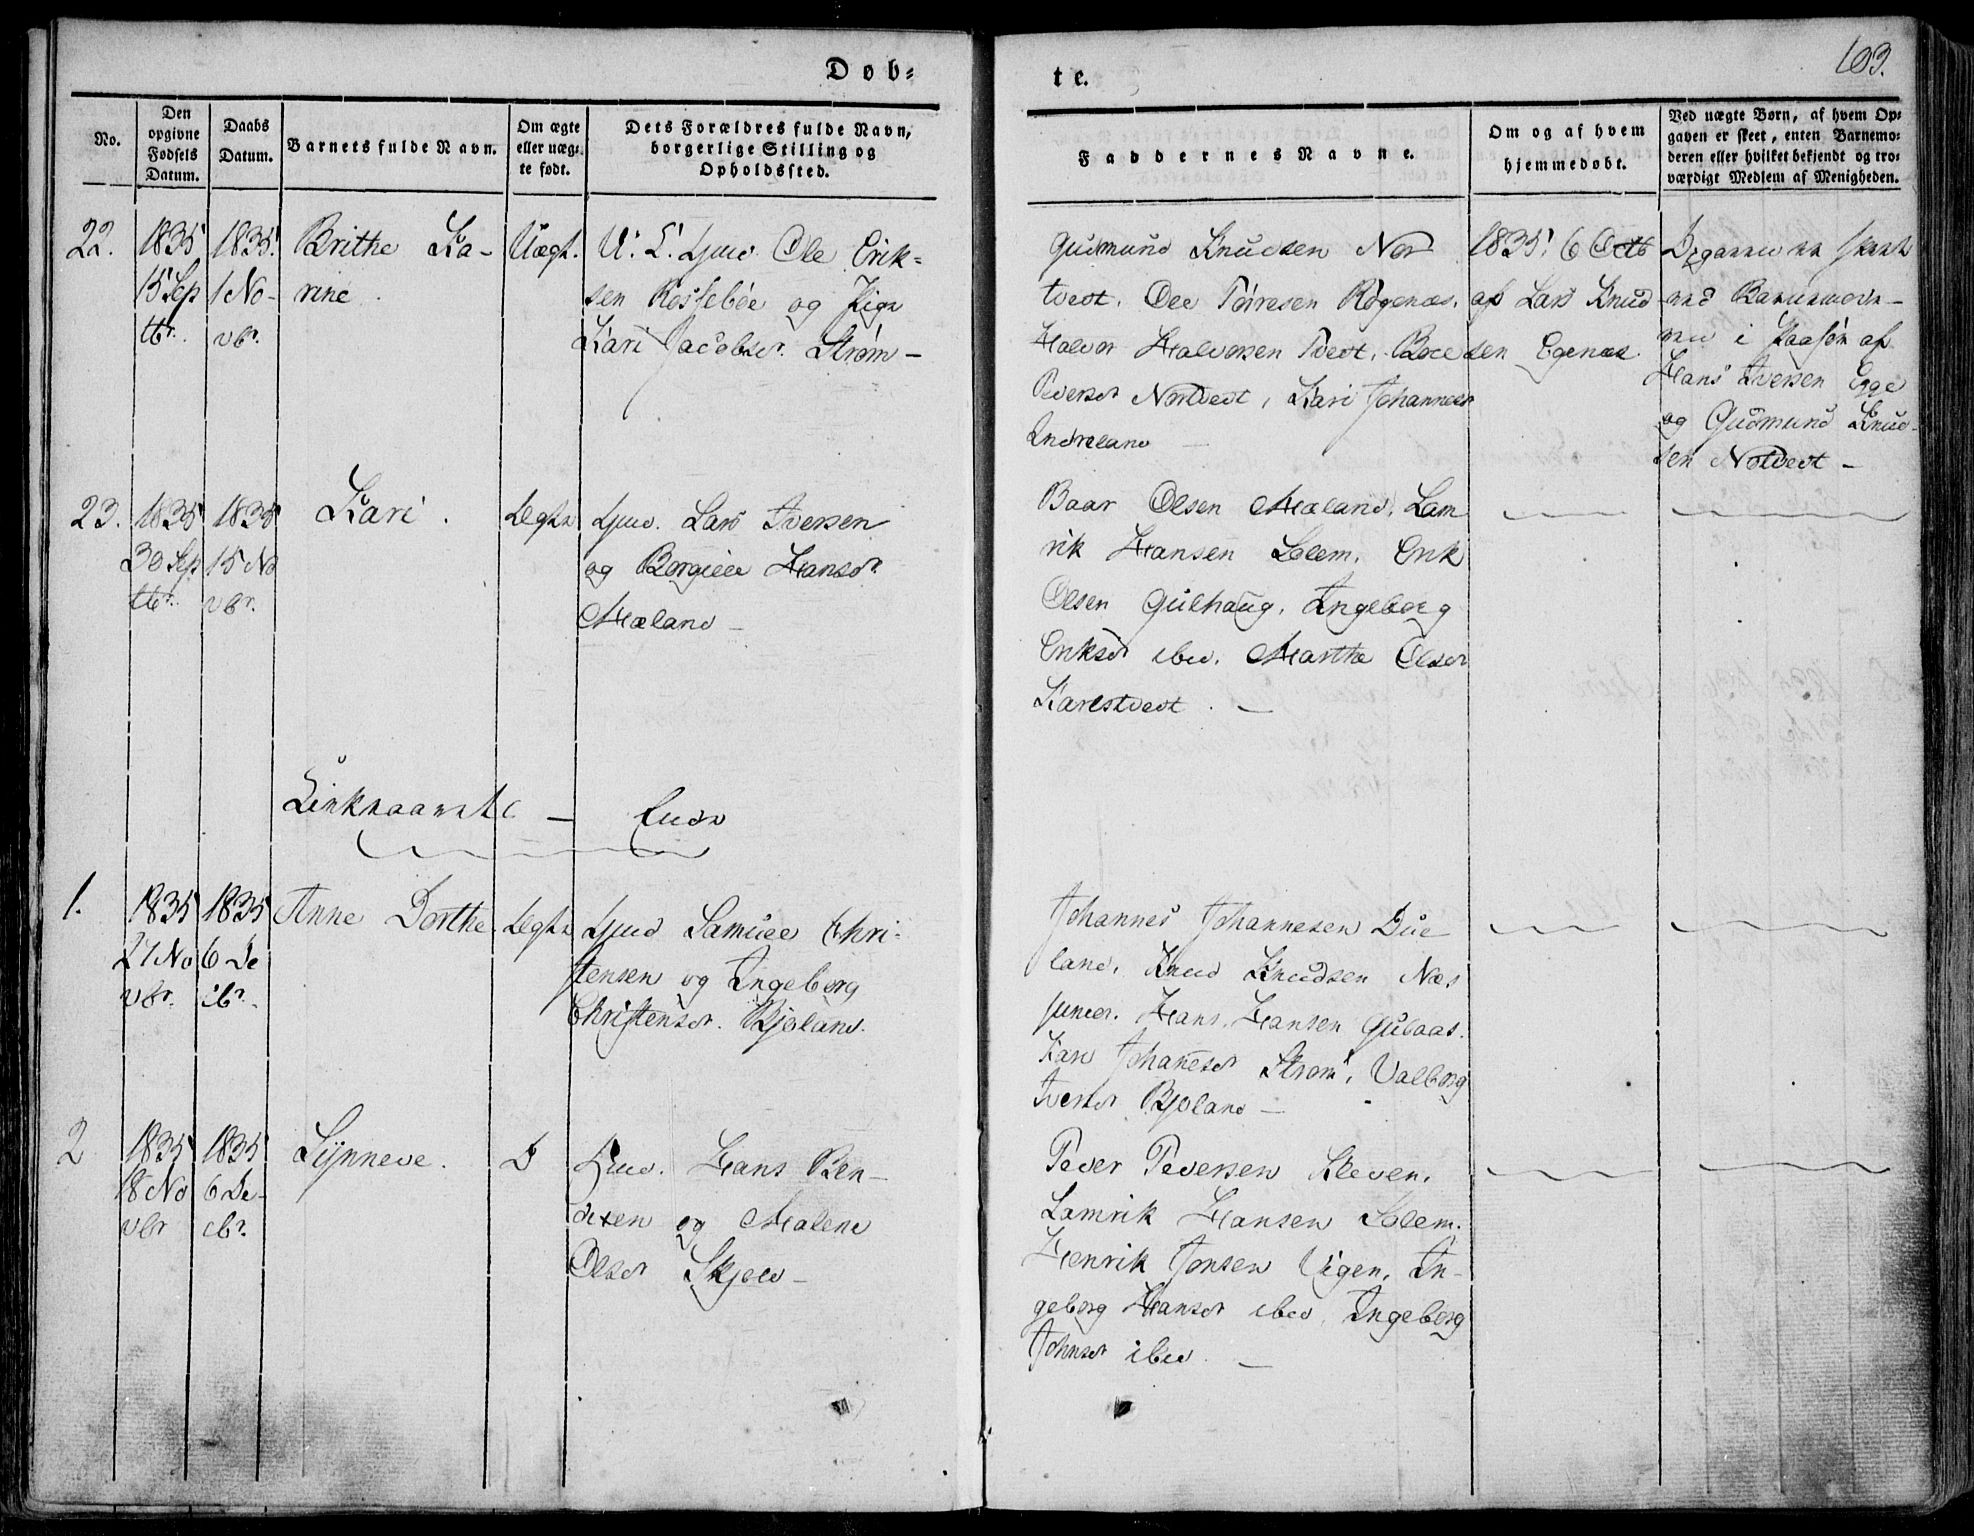 Døb=
te.
103.
No.
Den
opgivne
Fødsels
Datum.
Daabs
Datum.
Barnets fulde Navn.
Om ægte
eller uæg=
te født.
Dets Forældres fulde Navn,
borgerlige Stilling og
Opholdssted.
Faddernes Navne.
Om og af hvem
hjemmedøbt.
Ved uægte Børn, af hvem Op=
gaven er skeet, enten Barnemo=
deren eller hvilket bekjendt og tro=
værdigt Medlem af Menigheden.
22.
1835
15 Sep
tbr.
1835.
1 No-
vbr.
Brithe Ka-
rine.
Uægt.
U. L. Gmd. Ole Erik=
sen Rossebøe og Pige
Kari Jacobsdr. Strøm-
Gudmund Knudsen Nor
tvedt. Ole Toresen Røgenæs.
Halvor Halvorsen Tvedt,
Pedersdr Nortvedt, Kari Johannesdr
Indreland -
1835. 6 Octb
af Lars Knud
sen Egenæs.
ved Barnemode-
ren i Paasyn af
Hans Iversen Egge
og Gudmund Knud-
sen Notvedt -
23.
1835
30 Sep
tbr.
1835
15 No
vbr.
Kari.
Ægte
Gmd. Lars Iversen
og Borgille Hansdr
Mæland -
Baar Olsen Mæland. Lam
rik Hansen Solem. Erik
Olsen Gulhaug. Ingeborg
Eriksdr ibid. Marthe Olsdr
Karlstvedt. -
Kirkeaarets - Ende
1.
1835
27 No
vbr.
1835
6 De
cbr.
Anne Dorthe
Ægte
Gmd Samuel Chri-
stensen og Ingeborg
Christensdr. Bjoland.
Johannes Johannesen Due
land. Knud Knudsen Næs
Hans Hansen Gulaas.
Kari Johanesdr Strøm, Valborg
Iversdr Bjoland -
2
1835
18 No
vbr
1835
6 De-
cbr.
Synneve.
D
Gmd. Hans Ben-
dixen og Malene
Olsdr Skjold -
Peder Pedersen Kleven.
Lamrik Hansen Solem.
Henrik Jonsen Vigen. In-
geborg Hansdr ibid, Ingeborg
Johnsdr ibid. -